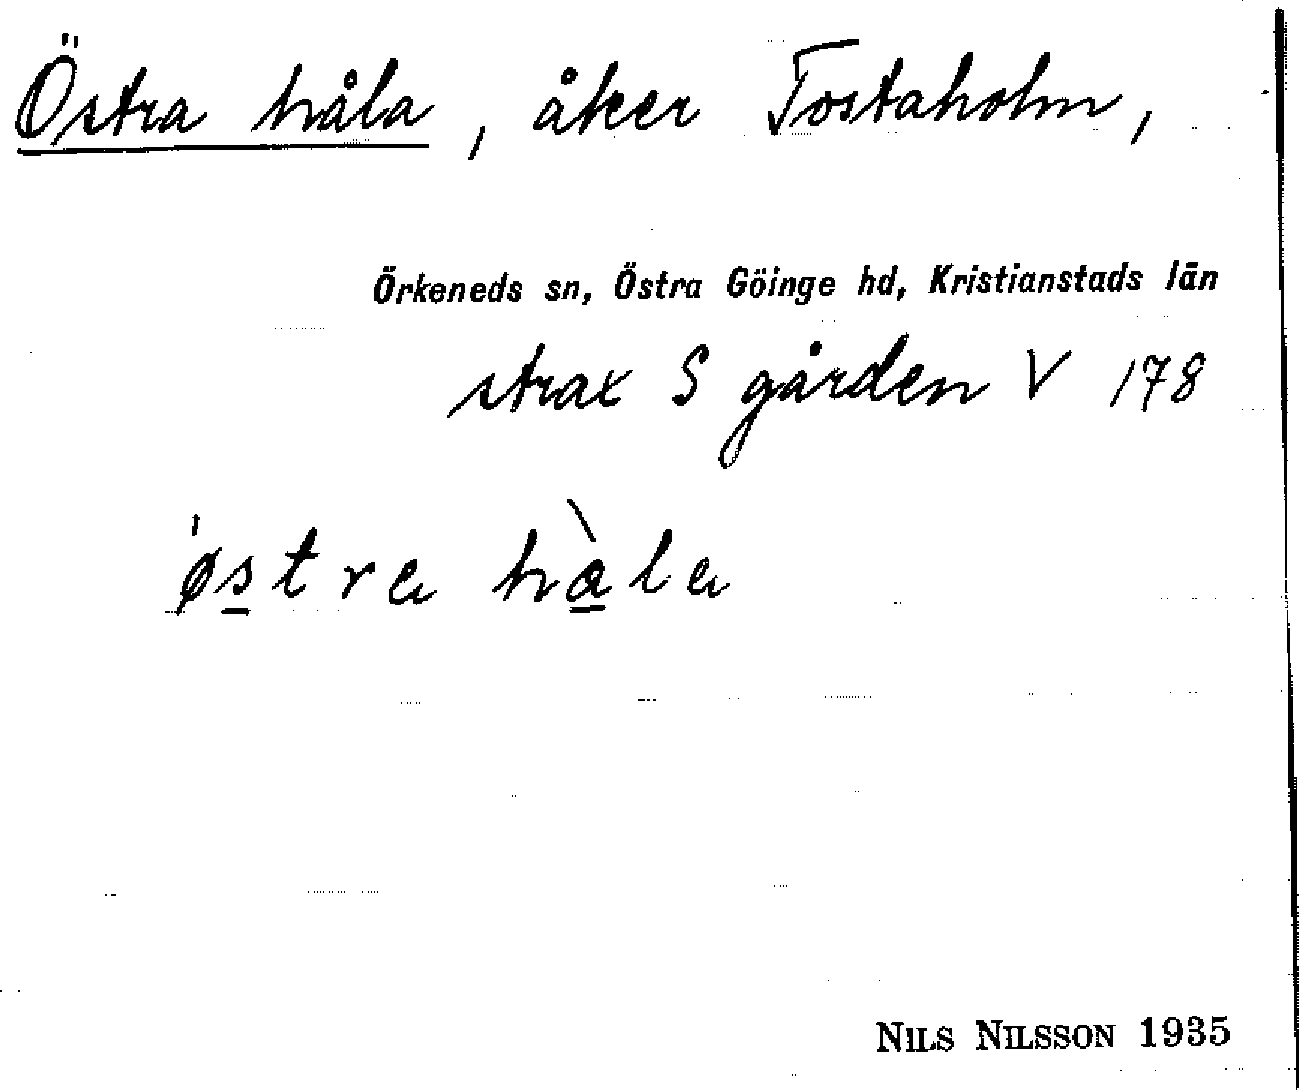 Östra håla, åker Tostaholm,
Örkeneds sn, Östra Göinge hd, Kristianstads län
strax S gården V 178
østra hàla
NILS NILSSON 1935